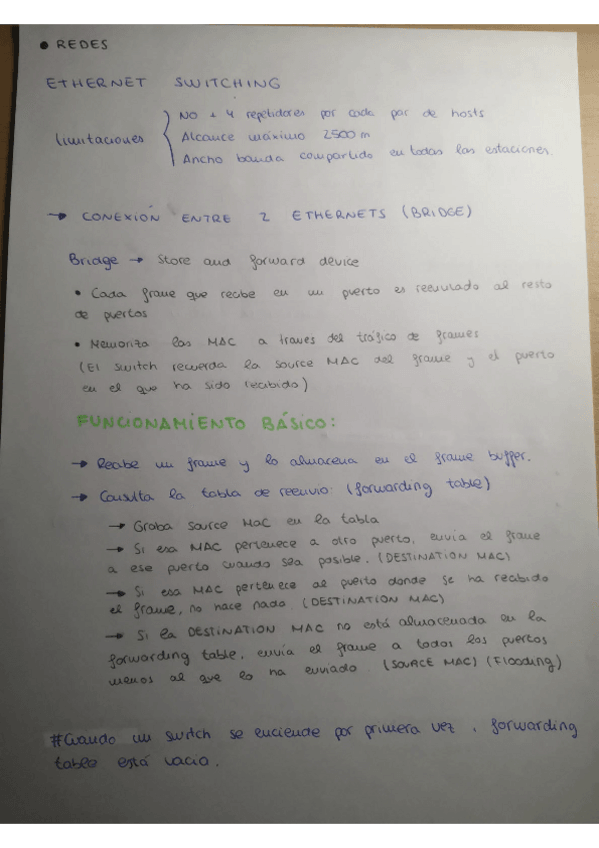 • REDES
ETHERNET SWITCHING
limitaciones
No + 4 repetidores por cada par de hosts
Alcance máximo 2500 m
Ancho banda compartido en todas las estaciones.
→ CONEXIÓN ENTRE 2 ETHERNETS (BRIDGE)
Bridge → Store and forward device
• Cada frame que recibe en un puerto es reenviado al resto
de puertos
• Memoriza las MAC a traves del tráfico de frames
(El switch recuerda la source MAC del frame y el puerto
en el que ha sido recibido)
FUNCIONAMIENTO BÁSICO:
→ Recibe un frame y lo almacena en el frame buffer.
→ Consulta la tabla de reenvio: (forwarding table)
→ Graba source MAC en la tabla
→ Si esa MAC pertenece a otro puerto, envia el frame
a ese puerto cuando sea posible. (DESTINATION MAC)
→ Si esa MAC pertenece al puerto donde se ha recibido
el frame, no hace nada (DESTINATION MAC)
→ Si la DESTINATION MAC no está almacenada en la
forwarding table, envía el frame a todos los puertos
menos al que lo ha enviado. (SOURCE MAC) (Flooding)
#Cuando un switch se enciende por primera vez, forwarding
table está vacia.